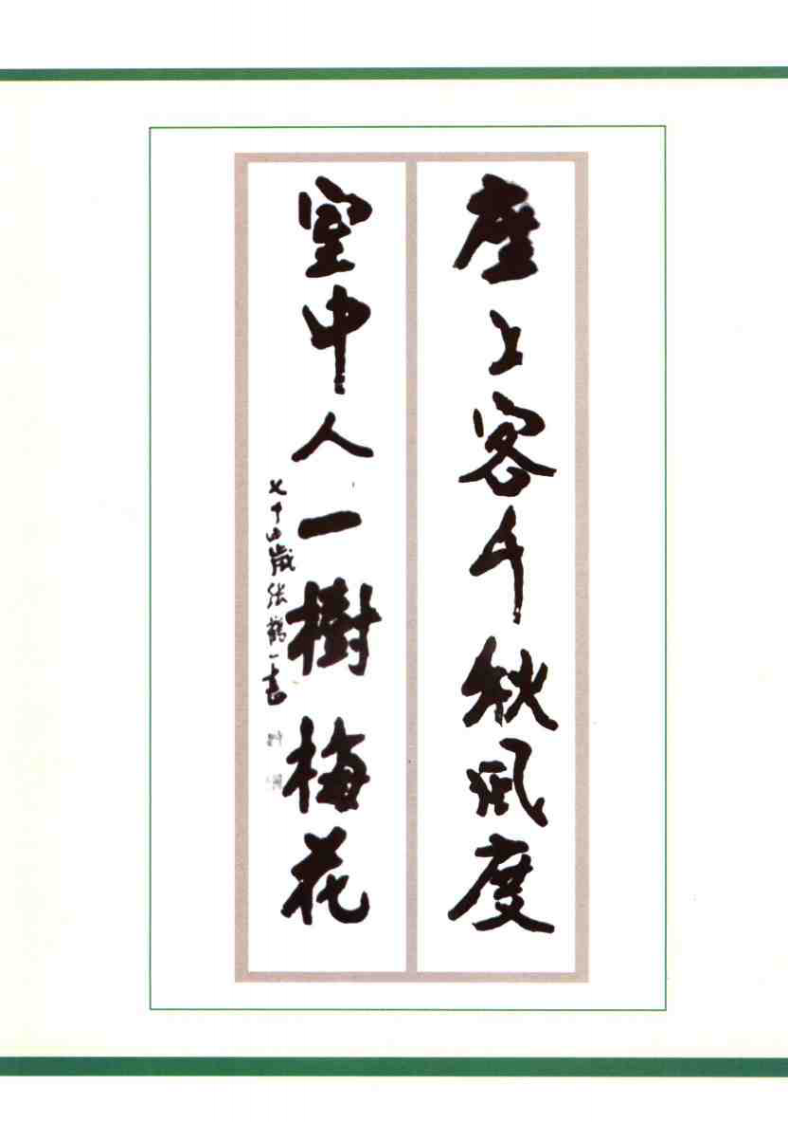 座上客千秋风度
室中人一樹梅花
七十四歲张鶴一書